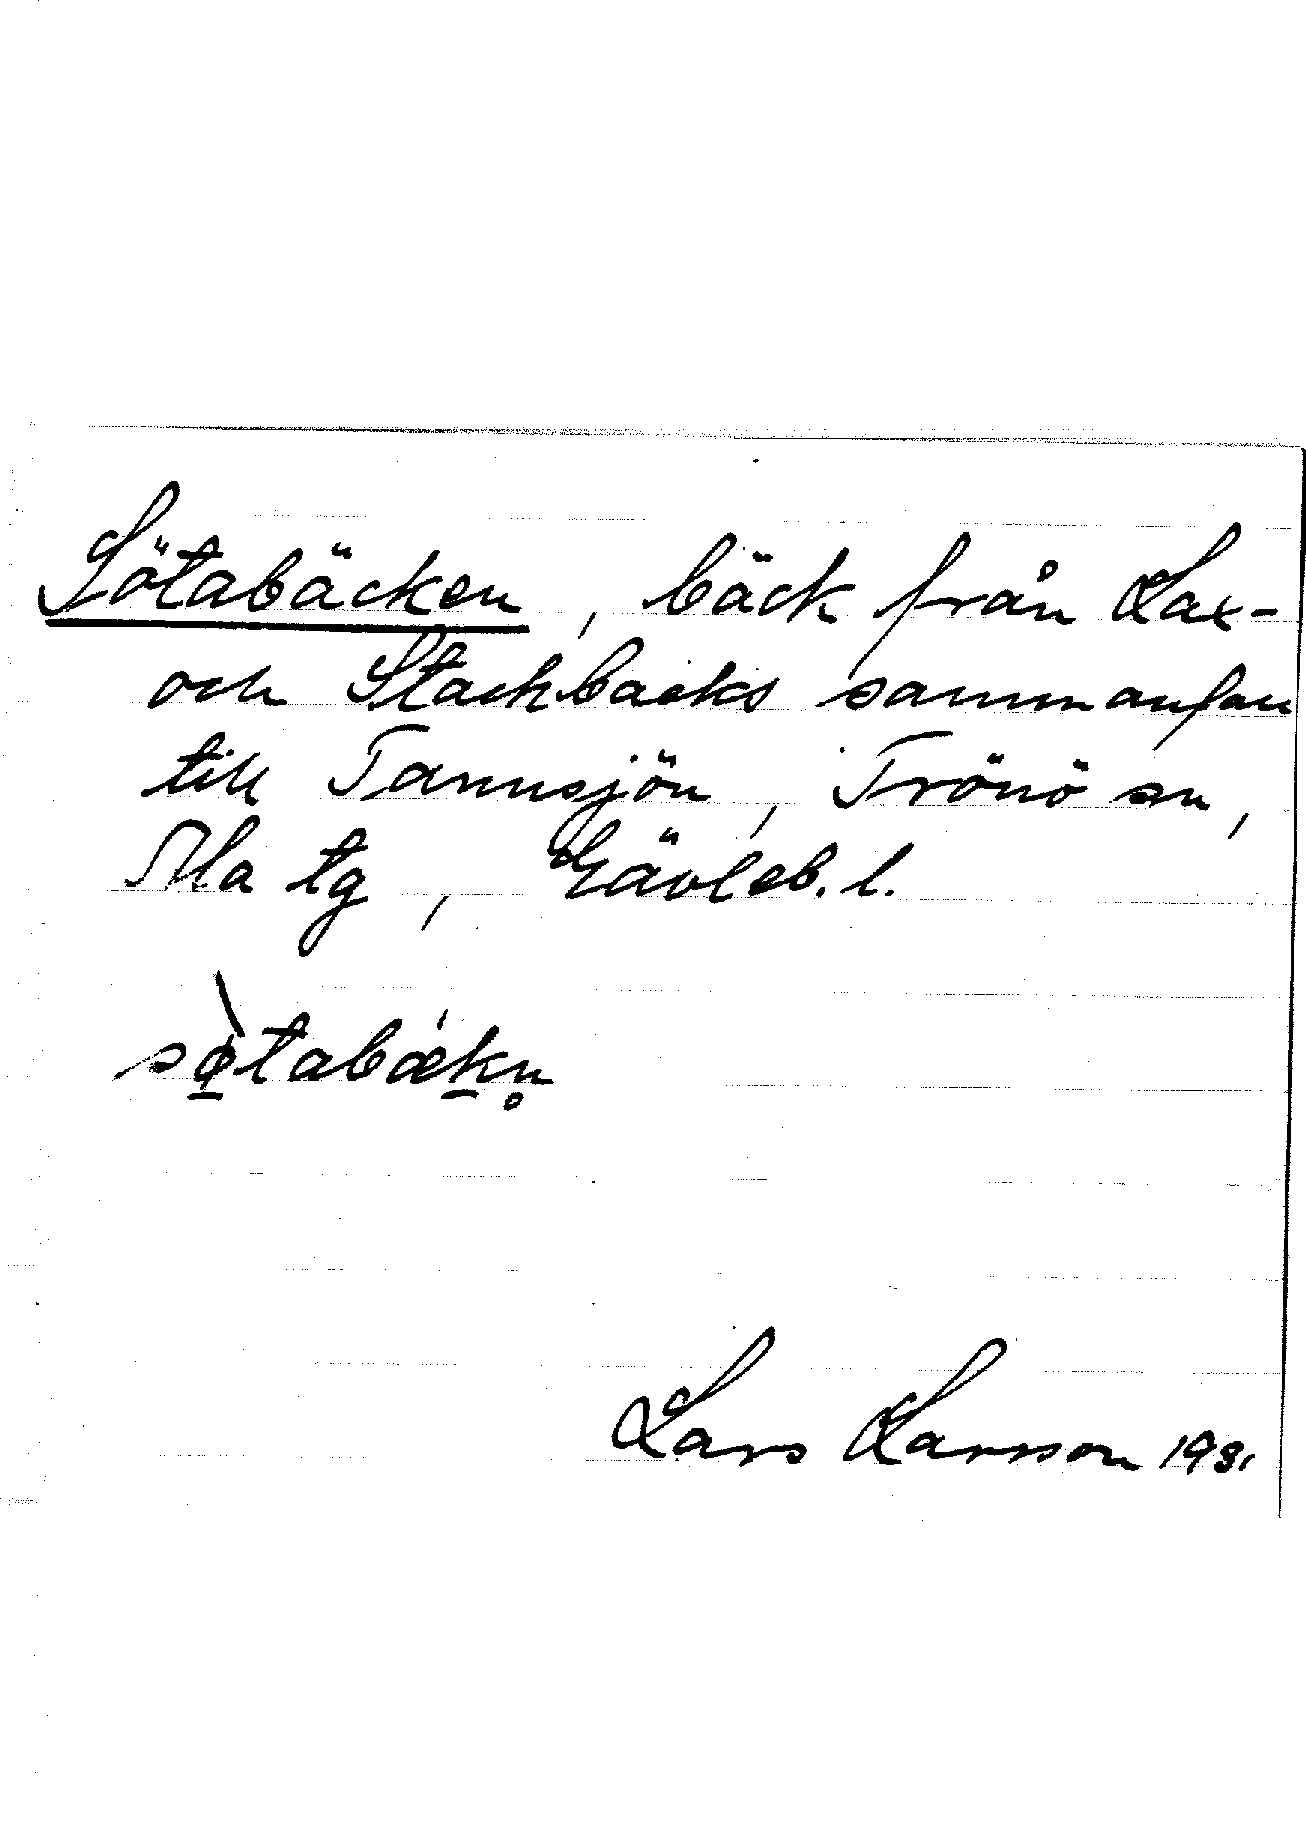 Sötabäcken, bäck från Lax-
och Stackbäcks sammanfan
till Tannsjön, Trönö sn,
Ala tg, Gävleb. l.
sø̀tabækn̥
Lars Larsson 1931